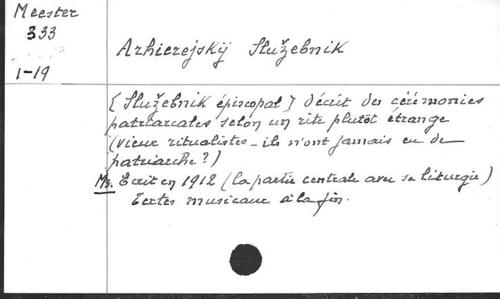 Meester
333
1-19
Arhierejskÿ Služebnik
[Služebnik épiscopal] Décrit des cérémonies
patriarcales selon un rite plutôt étrange
(vieux ritualistes - ils n'ont jamais eu de
patriarche?)
Ms. Ecrit en 1912 (la partie centrale avec sa liturgie)
Textes musicaux à la fin.